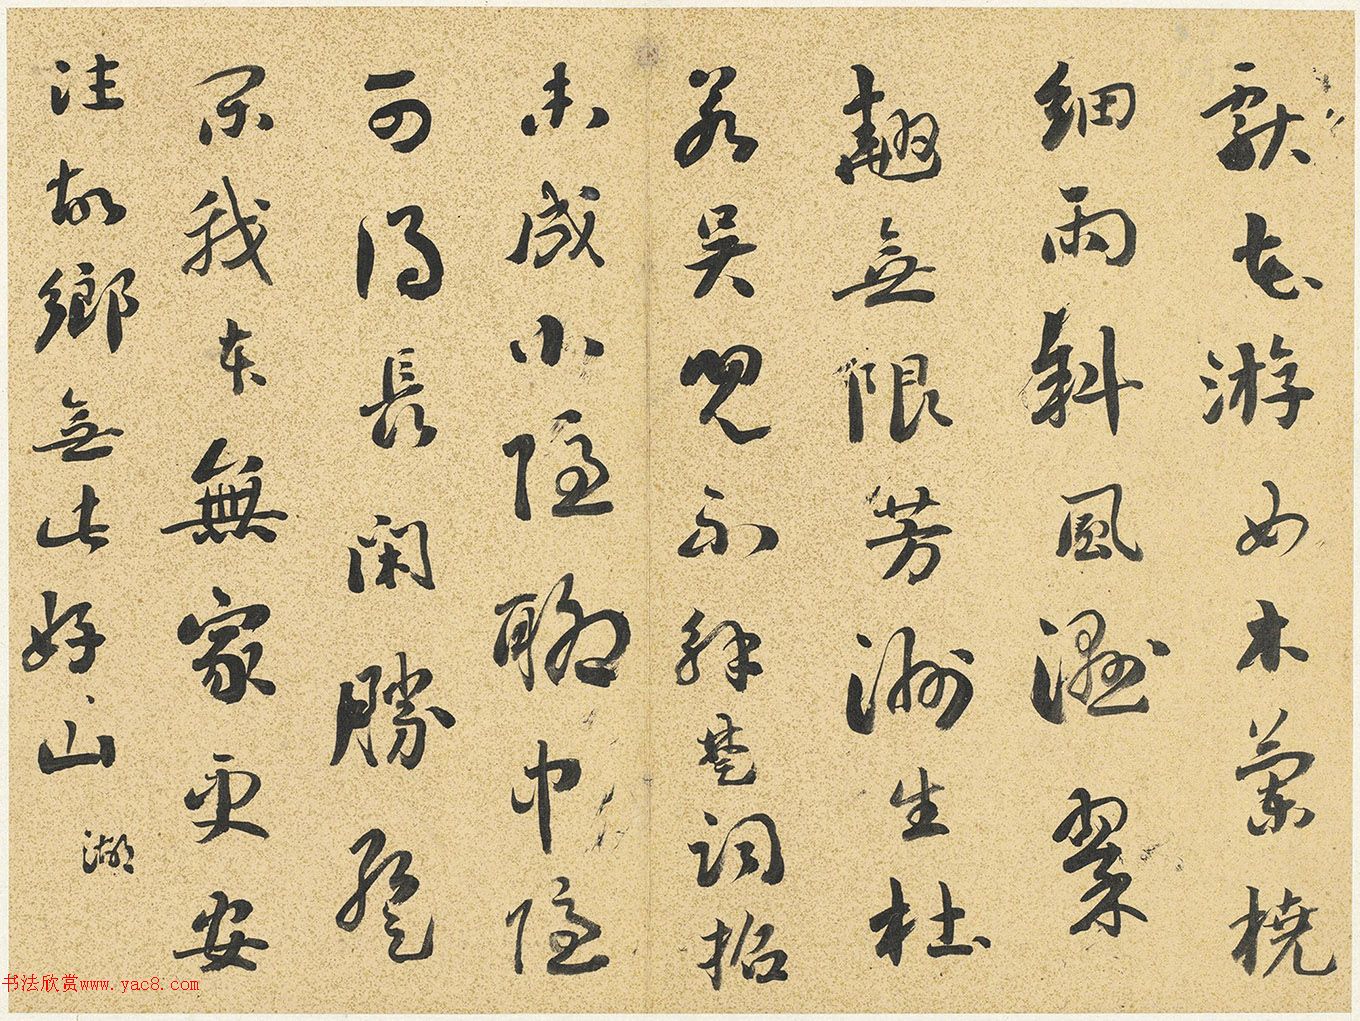 獻花游女木蘭橈
細雨斜風濕翠
翹無限芳洲生杜
若吳兒不解楚詞招
未成小隱聊中隱
可得長閑勝暫
閑我本無家更安
往故鄉無此好山湖
书法欣赏www.yac8.com